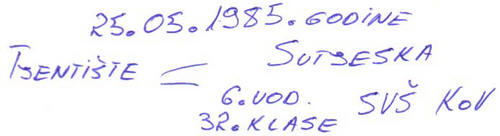 25.05.1985. GODINE
TJENTIŠTE = SUTJESKA
6. VOD. SVŠ KOV
32. KLASE